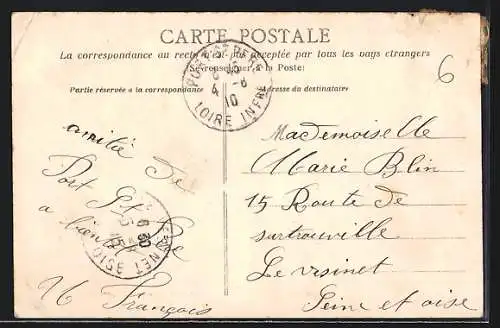 CARTE POSTALE
La correspondance au recto n'est pas acceptée par tous les pays étrangers
Se renseigner à la Poste:
Partie réservée à la correspondance
Adresse du destinataire
6
PORT ST PERE
4 - 8
10
LOIRE INFRE
amitié de
Port St Père
a bientôt
François
Mademoiselle
Marie Blin
15 Route de
sartrouville
Le vesinet
Seine et oise